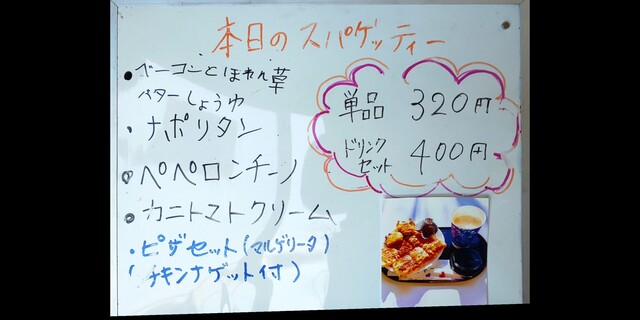 本日のスパゲッティー
・ベーコンとほうれん草
バターしょうゆ
・ナポリタン
・ペペロンチーノ
・カニトマトクリーム
・ピザセット(マルゲリータ)
(チキンナゲット付)
単品 320円
ドリンクセット 400円